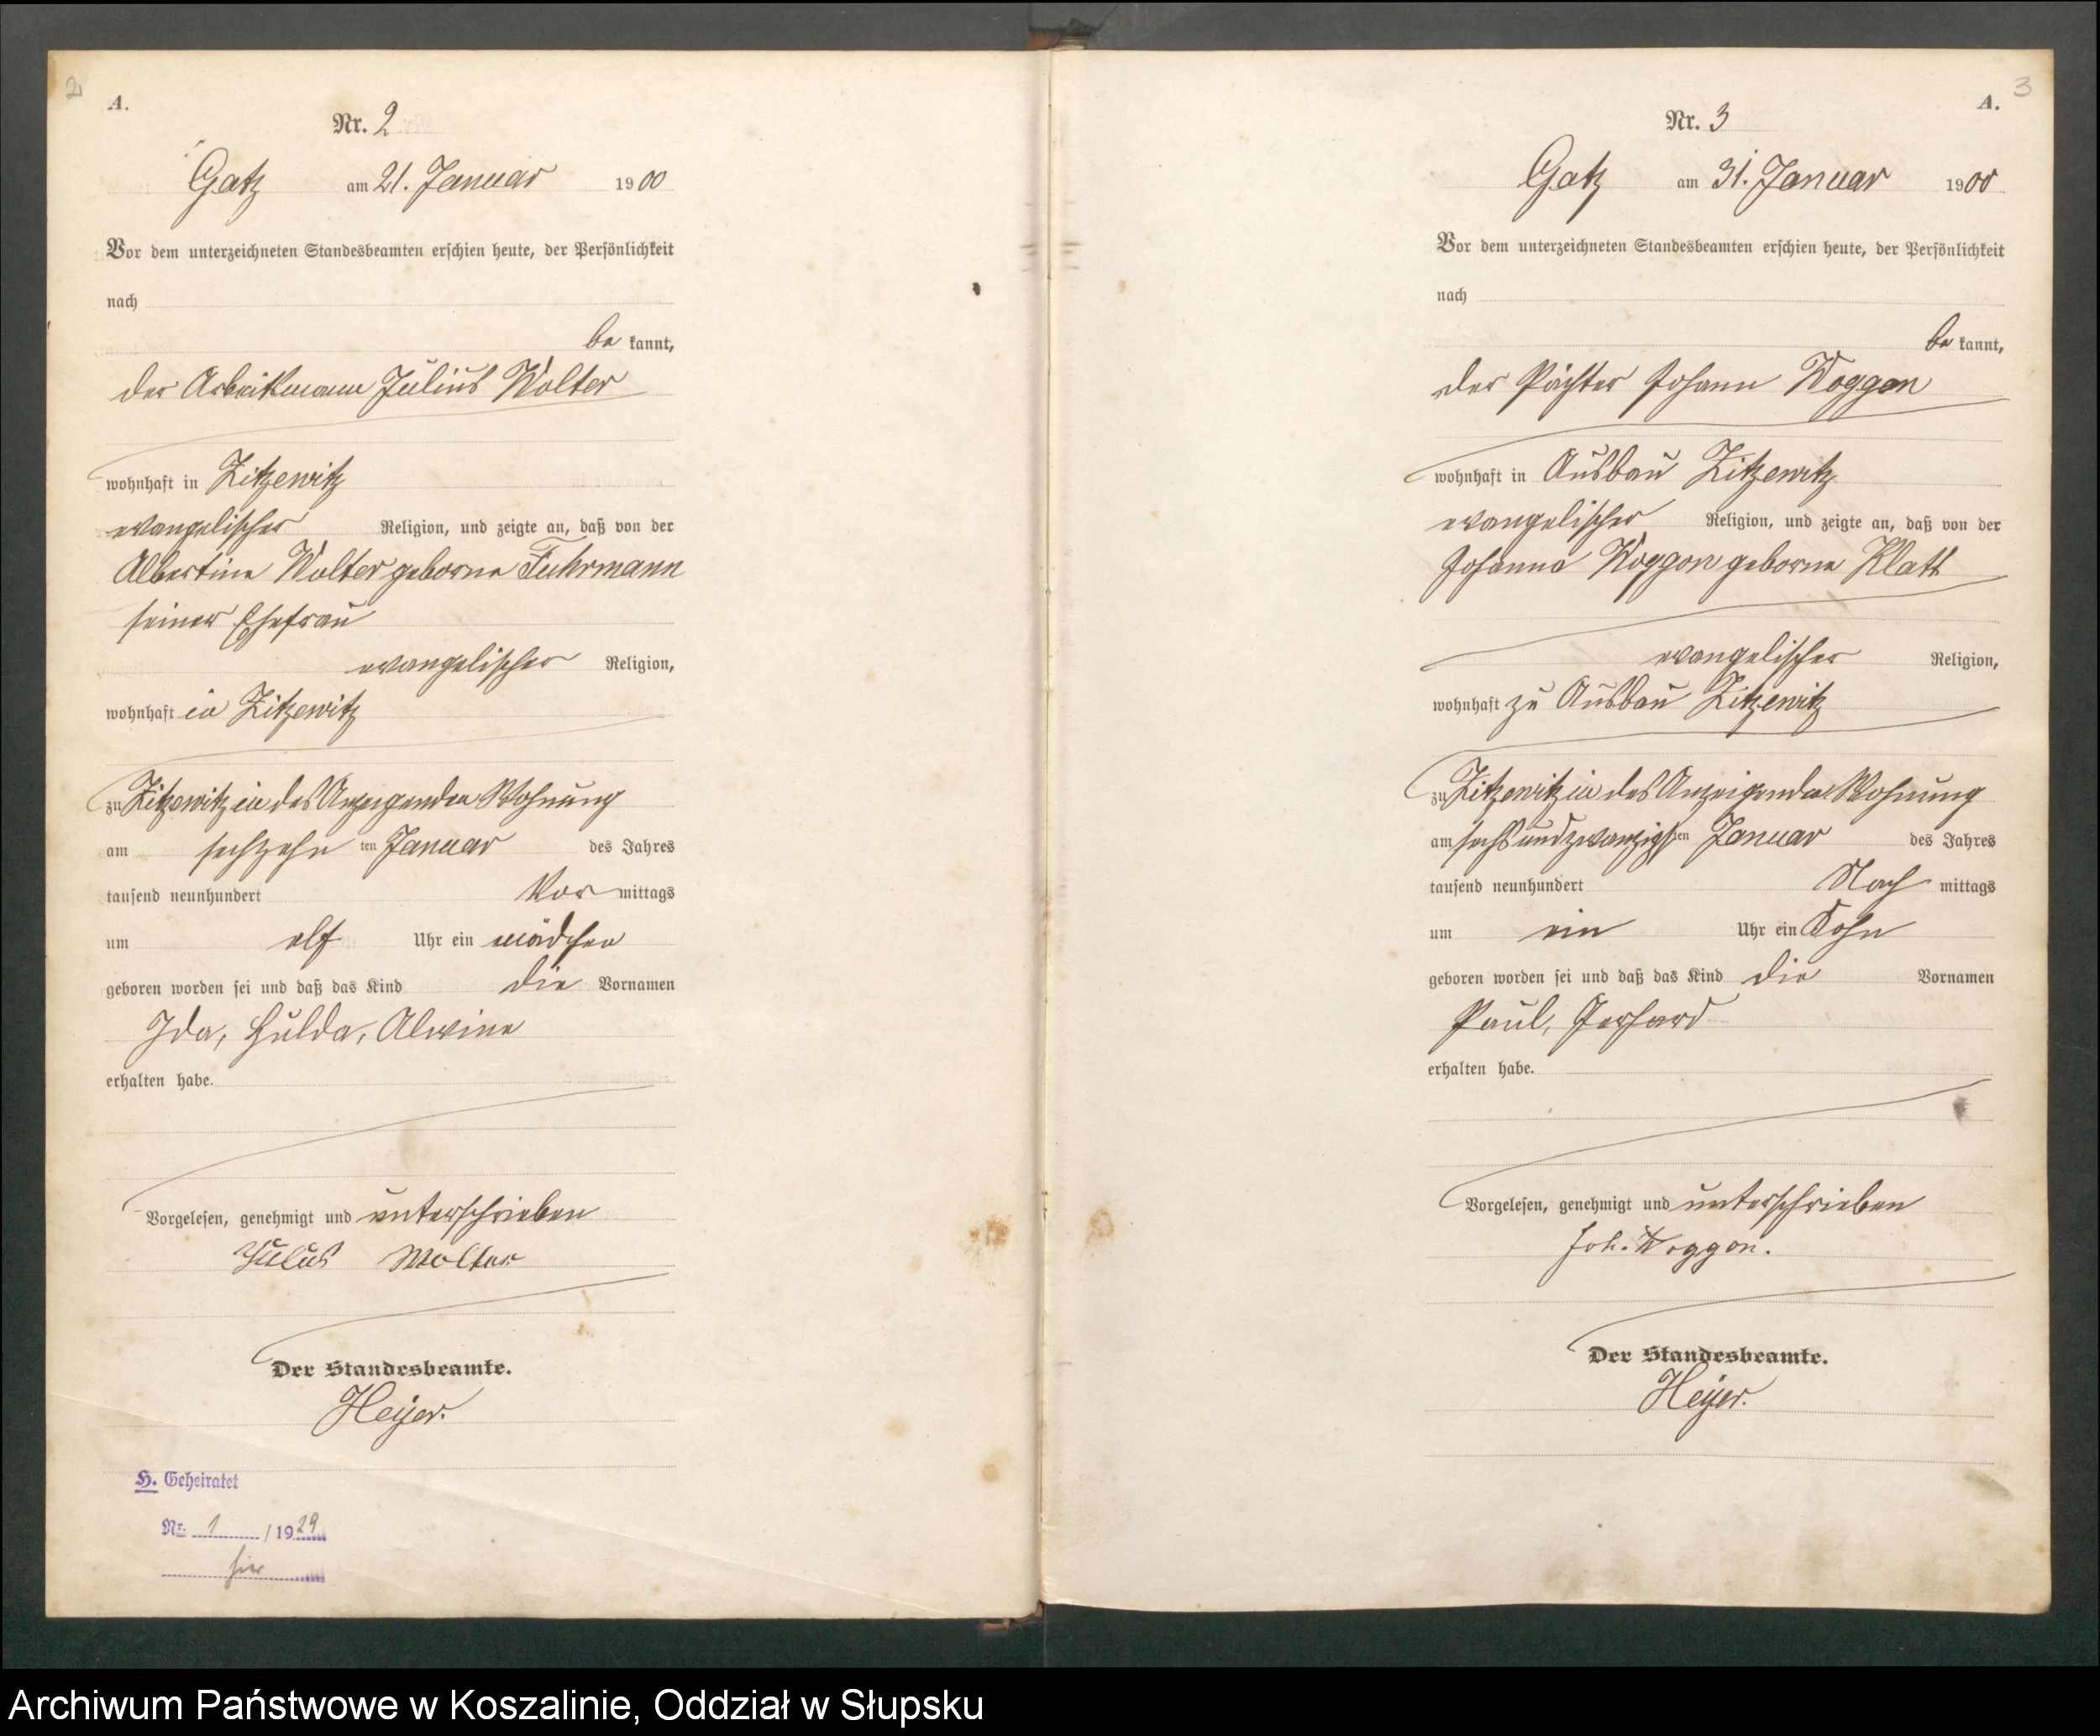 2
A.
Nr. 2
Gatz am 21. Januar 1900
Vor dem unterzeichneten Standesbeamten erschien heute, der Persönlichkeit
nach
be kannt,
der Arbeitsmann Julius Wolter
wohnhaft in Zitzewitz
evangelischer Religion, und zeigte an, daß von der
Albertine Wolter geborne Fuhrmann
seiner Ehefrau
evangelischer Religion,
wohnhaft in Zitzewitz
zu Zitzewitz in des Anzeigenden Wohnung
am sechzehn ten Januar des Jahres
tausend neunhundert Vor mittags
um elf Uhr ein mädchen
geboren worden sei und daß das Kind die Vornamen
Ida, Hulda, Alwine
erhalten habe.
Vorgelesen, genehmigt und unterschrieben
Julius Wolter
Der Standesbeamte.
Heyer.
H. Geheiratet
Nr. 1 / 1929
hier
3
A.
Nr. 3
Gatz am 31. Januar 1900
Vor dem unterzeichneten Standesbeamten erschien heute, der Persönlichkeit
nach
be kannt,
der Pächter Johann Woggon
wohnhaft in Ausbau Zitzewitz
evangelischer Religion, und zeigte an, daß von der
Johanna Woggon geborne Klatt
evangelischer Religion,
wohnhaft zu Ausbau Zitzewitz
zu Zitzewitz in des Anzeigenden Wohnung
am sechsundzwanzigsten Januar des Jahres
tausend neunhundert Nach mittags
um ein Uhr ein Sohn
geboren worden sei und daß das Kind die Vornamen
Paul, Gerhard
erhalten habe.
Vorgelesen, genehmigt und unterschrieben
Joh. Woggon.
Der Standesbeamte.
Heyer.
Archiwum Państwowe w Koszalinie, Oddział w Słupsku